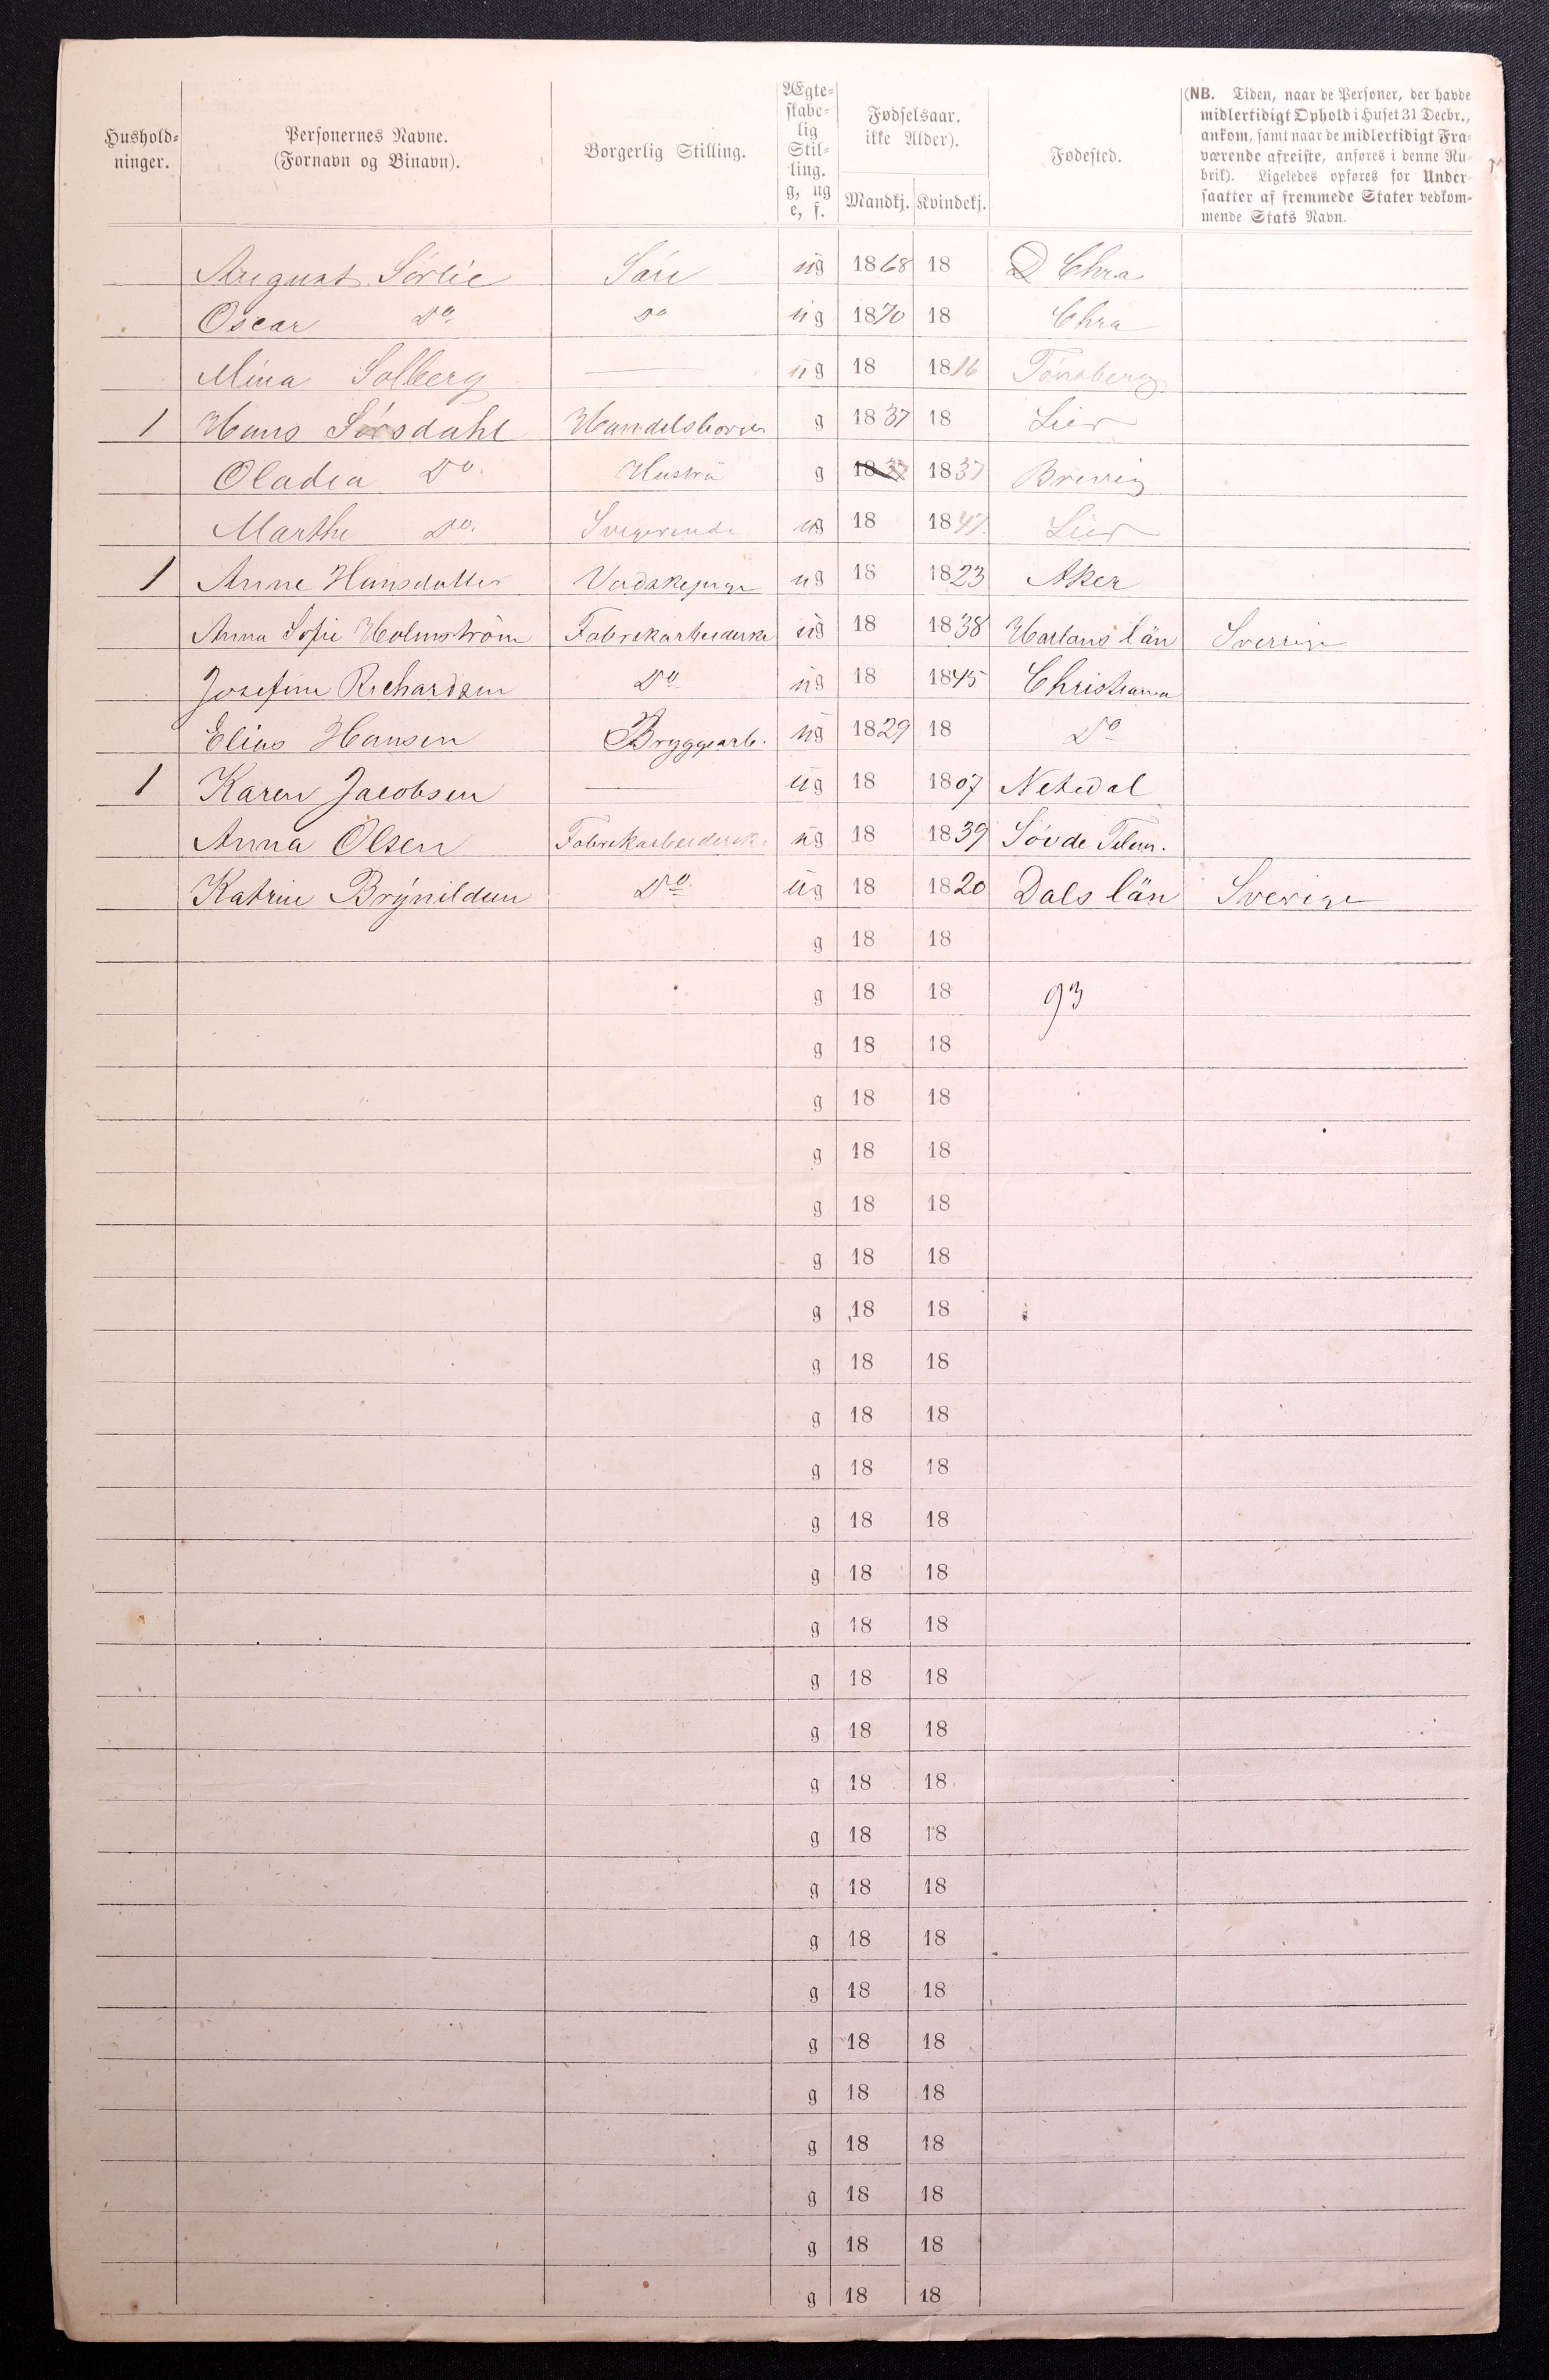 Hushold-
ninger.
Personernes Navne.
(Fornavn og Binavn).
Borgerlig Stilling.
Ægte-
skabe-
lig
Stil-
ling.
g, ug
e, f.
Fødselsaar.
ikke Alder).
Mandkj. Kvindekj.
Fødested.
(NB. Tiden, naar de Personer, der havde
midlertidigt Ophold i Huset 31 Decbr.,
ankom, samt naar de midlertidigt Fra-
værende afreiste, anføres i denne Ru-
brik). Ligeledes opføres for Under-
saatter af fremmede Stater vedkom-
mende Stats Navn.
August Sørlie Søn ug 1868 18 Chra
Oscar Do Do ug 1870 18 Chra
Mina Solberg — ug 18 1816 Tønsberg
1 Hans Sørsdahl g 1837 18 Lier
Oladia Do. Hustru g 1837 1837 Brevig
Marthe Do. ug 18 1847 Lier
1 Anne Hansdatter ug 18 1823 Aker
Anna Sofie Holmström Fabrikarbeiderske ug 18 1838 Hallans län Sverrige
Josefine Richardsen Do ug 18 1845 Christiania
Elias Hansen Bryggearb. ug 1829 18 Do
1 Karen Jacobsen — ug 18 1807 Netedal
Anna Olsen Fabrikarbeiderske ug 18 1839 Søvde Telem.
Katrine Brynildsen Do ug 18 1820 Dals län Sverige
g 18 18
g 18 18 93
g 18 18
g 18 18
g 18 18
g 18 18
g 18 18
g 18 18
g 18 18
g 18 18
g 18 18
g 18 18
g 18 18
g 18 18
g 18 18
g 18 18
g 18 18
g 18 18
g 18 18
g 18 18
g 18 18
g 18 18
g 18 18
g 18 18
g 18 18
g 18 18
g 18 18